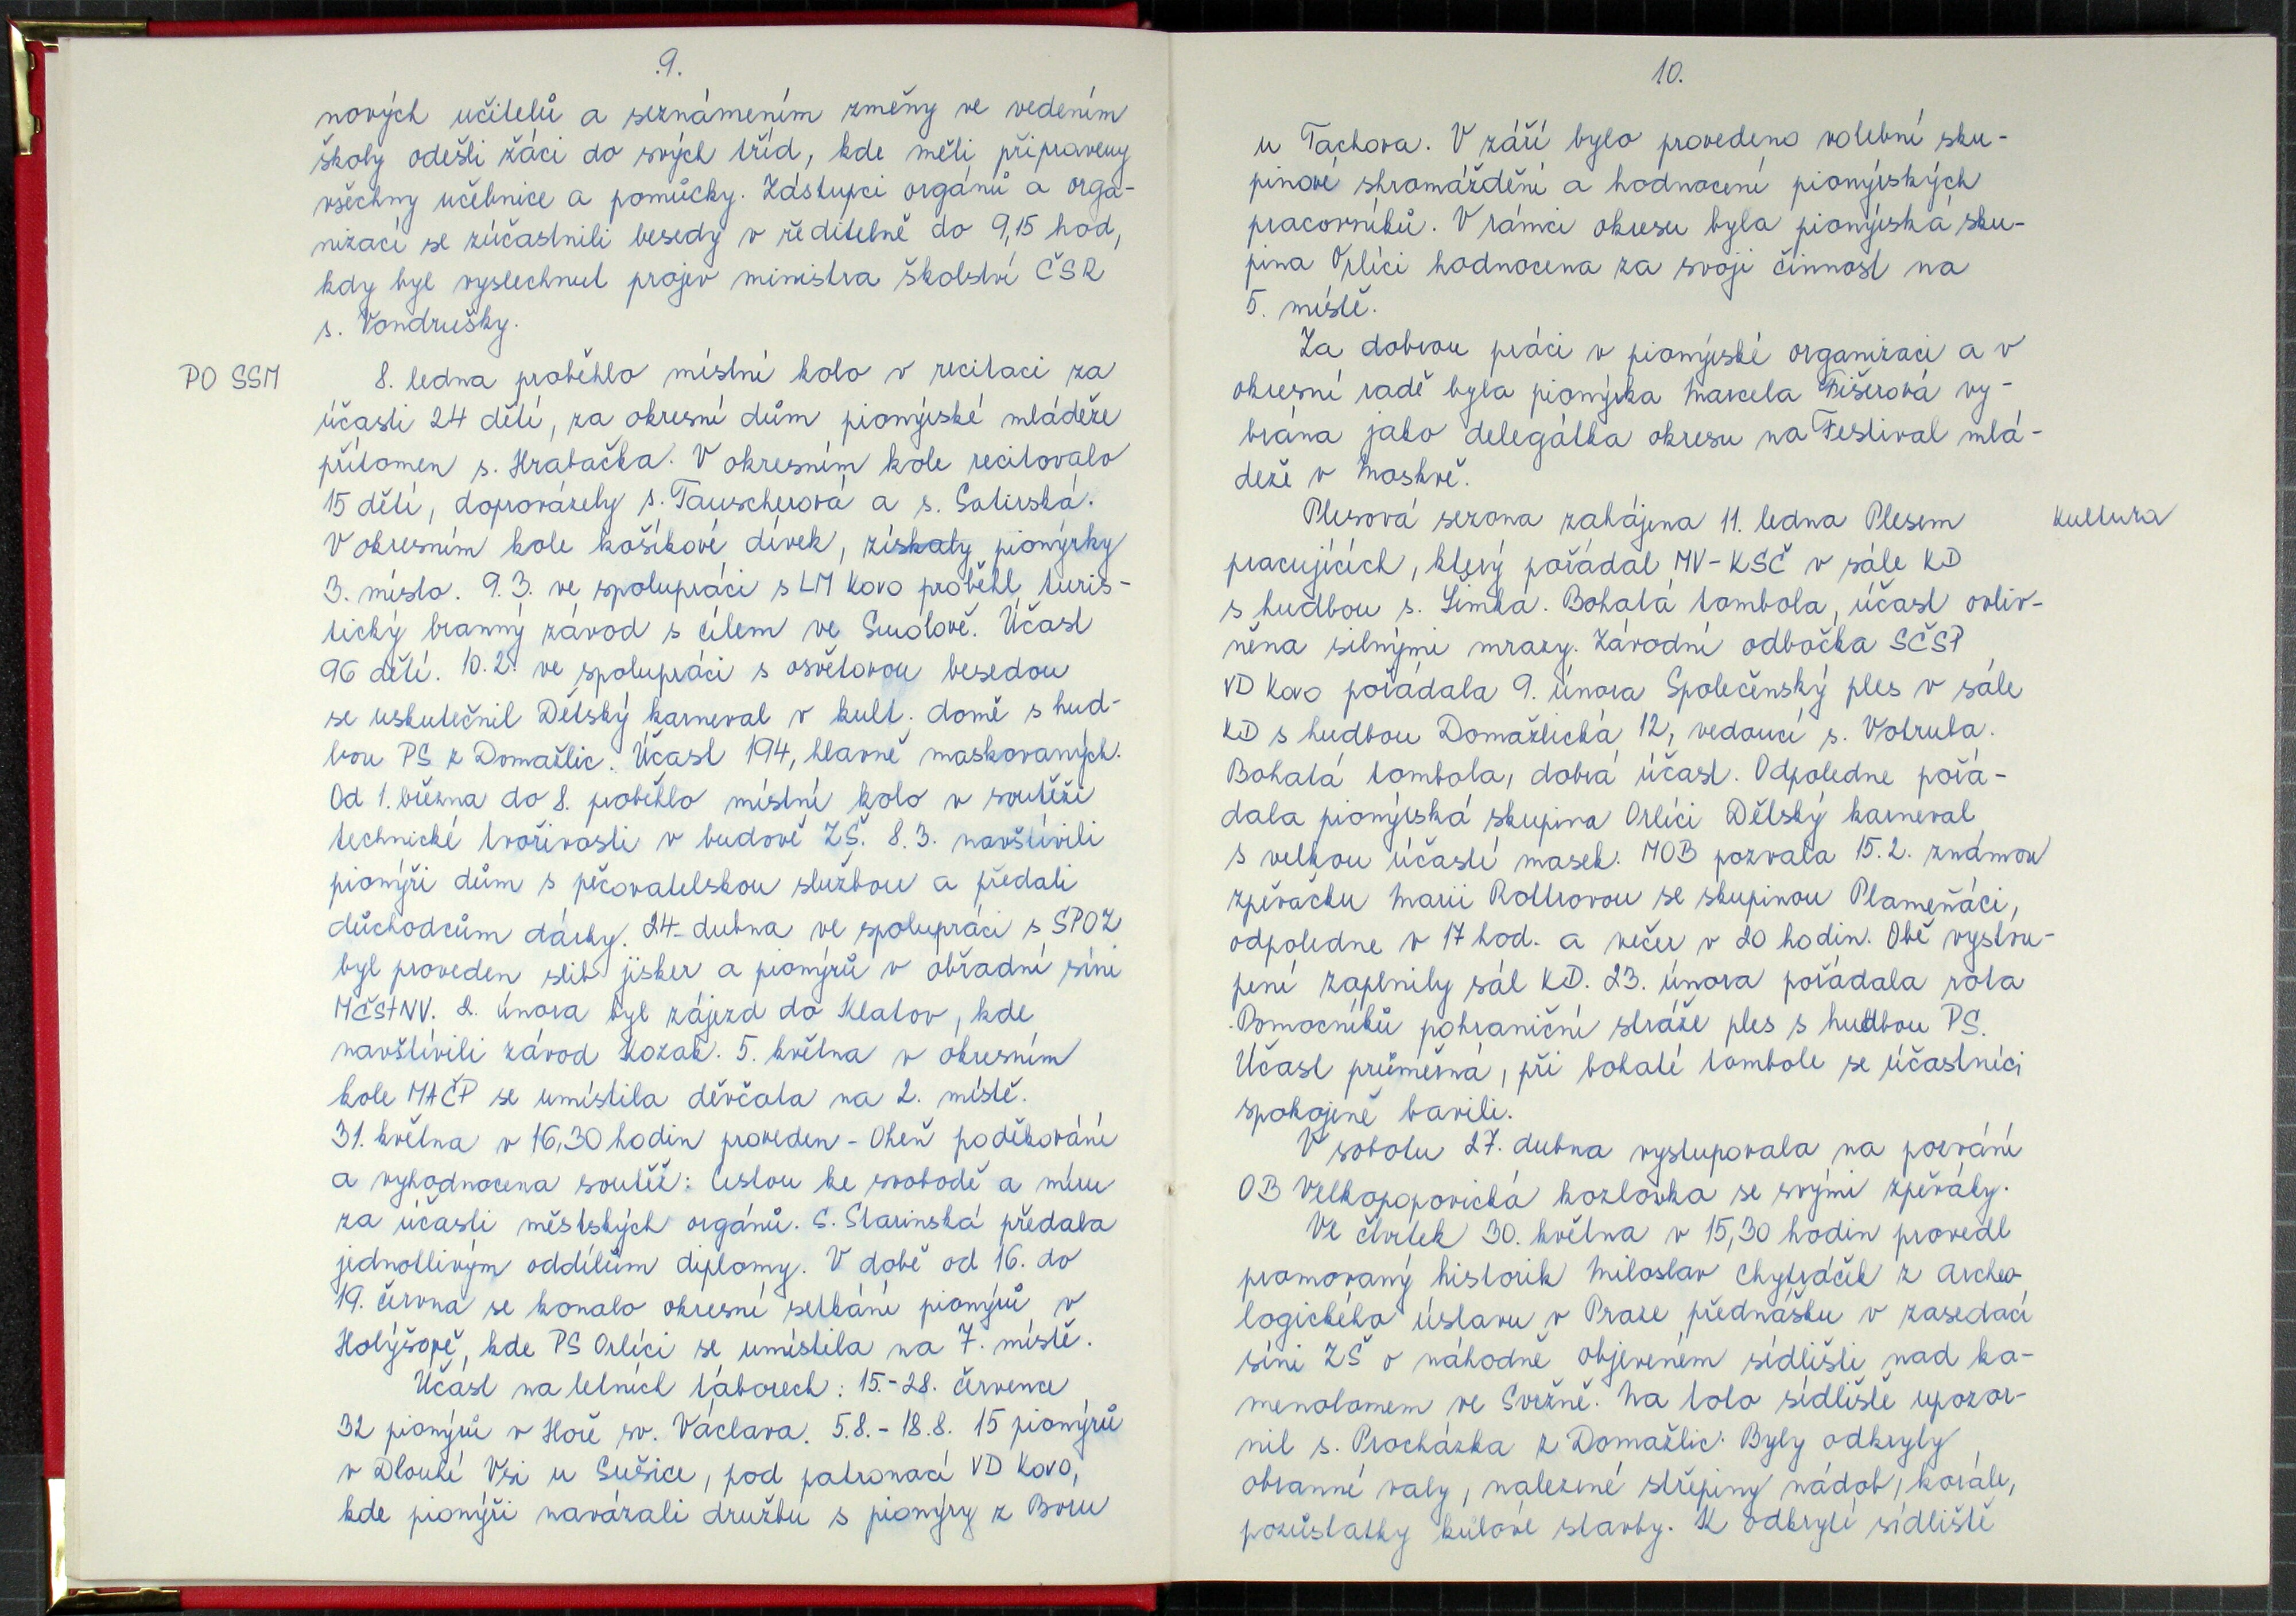 9.
nových učitelů a seznámením změny ve vedením
školy odešli žáci do svých tříd, kde měli připraveny
všechny učebnice a pomůcky. Zástupci orgánů a orga-
nizací se zúčastnili besedy v ředitelně do 9,15 hod,
kdy byl vyslechnut projev ministra školství ČSR
s. Vondrušky.
PO SSM
8. ledna proběhlo místní kolo v recitaci za
účasti 24 dětí, za okresní dům pionýrské mládeže
přítomen s. Hrabačka. V okresním kole recitovalo
15 dětí, doprovázely s. Tauscherová a s. Satirská.
V okresním kole košíkové dívek, získaly pionýrky
3. místo. 9.3. ve spolupráci s LM Kovo proběhl turis-
tický branný závod s cílem ve Smolově. Účast
96 dětí. 10.2. ve spolupráci s osvětovou besedou
se uskutečnil Dětský karneval v kult. domě s hud-
bou PS z Domažlic. Účast 194, hlavně maskovaných.
Od 1. března do 8. proběhlo místní kolo v soutěži
technické tvořivosti v budově ZŠ. 8.3. navštívili
pionýři dům s pečovatelskou službou a předali
důchodcům dárky. 24. dubna ve spolupráci s SPOZ
byl proveden slib jisker a pionýrů v obřadní síni
MěstNV. 2. února byl zájezd do Klatov, kde
navštívili závod Kozak. 5. května v okresním
kole MAČP se umístila děvčata na 2. místě.
31. května v 16,30 hodin proveden - Oheň poděkování
a vyhodnocena soutěž: Cestou ke svobodě a míru
za účasti městských orgánů. S. Starinská předala
jednotlivým oddílům diplomy. V době od 16. do
19. června se konalo okresní setkání pionýrů v
Holýšově, kde PS Orlíci se umístila na 7. místě.
Účast na letních táborech: 15.-28. července
32 pionýrů v Hoře sv. Václava. 5.8.- 18.8. 15 pionýrů
v Dlouhé Vsi u Sušice, pod patronací VD Kovo,
kde pionýři navázali družbu s pionýry z Boru
10.
u Tachova. V září bylo provedeno volební sku-
pinové shromáždění a hodnocení pionýrských
pracovníků. V rámci okresu byla pionýrská sku-
pina Orlíci hodnocena za svoji činnost na
5. místě.
Za dobrou práci v pionýrské organizaci a v
okresní radě byla pionýrka Marcela Fišerová vy-
brána jako delegátka okresu na Festival mlá-
deže v Moskvě.
Plesová sezona zahájena 11. ledna Plesem
kultura
pracujících, který pořádal MV-KSČ v sále KD
s hudbou s. Šimka. Bohatá tombola, účast ovliv-
něna silnými mrazy. Závodní odbočka SČSP
VD Kovo pořádala 9. února Společenský ples v sále
KD s hudbou Domažlická 12, vedoucí s. Votruba.
Bohatá tombola, dobrá účast. Odpoledne pořá-
dala pionýrská skupina Orlíci Dětský karneval
s velkou účastí masek. MOB pozvala 15.2. známou
zpěvačku Marii Rottrovou se skupinou Plameňáci,
odpoledne v 17 hod. a večer v 20 hodin. Obě vystou-
pení zaplnily sál KD. 23. února pořádala rota
Pomocníků pohraniční stráže ples s hudbou PS.
Účast průměrná, při bohaté tombole se účastníci
spokojeně bavili.
V sobotu 27. dubna vystupovala na pozvání
OB Velkopopovická kozlovka se svými zpěváky.
Ve čtvrtek 30. května v 15,30 hodin provedl
promovaný historik Miloslav Chytráček z archeo
logického ústavu v Praze přednášku v zasedací
síni ZŠ o náhodně objeveném sídlišti nad ka-
menolomem ve Svržně. Na toto sídliště upozor-
nil s. Procházka z Domažlic. Byly odkryty
obranné valy, nalezené střepiny nádob, korále,
pozůstatky kůlové stavby. K odkrytí sídliště